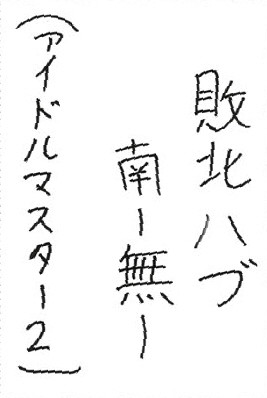 敗北ハブ
南ー無ー
(アイドルマスター2)